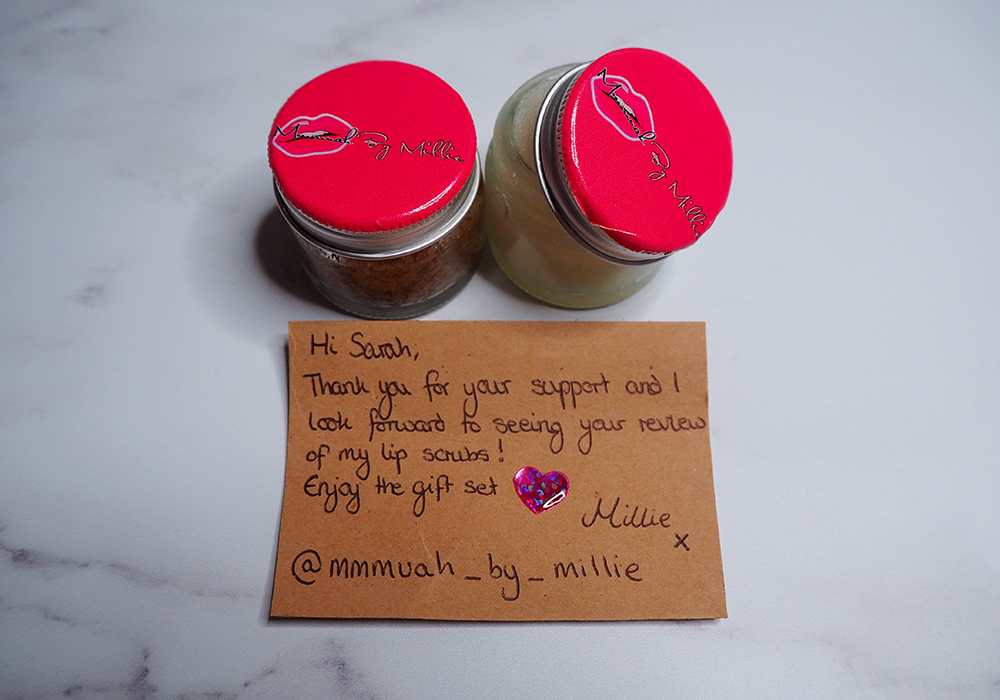 Mmmuah By Millie
Mmmuah By Millie
Hi Sarah,
Thank you for your support and I
look forward to seeing your review
of my lip scrubs!
Enjoy the gift set
Millie
x
@mmmuah_by_millie